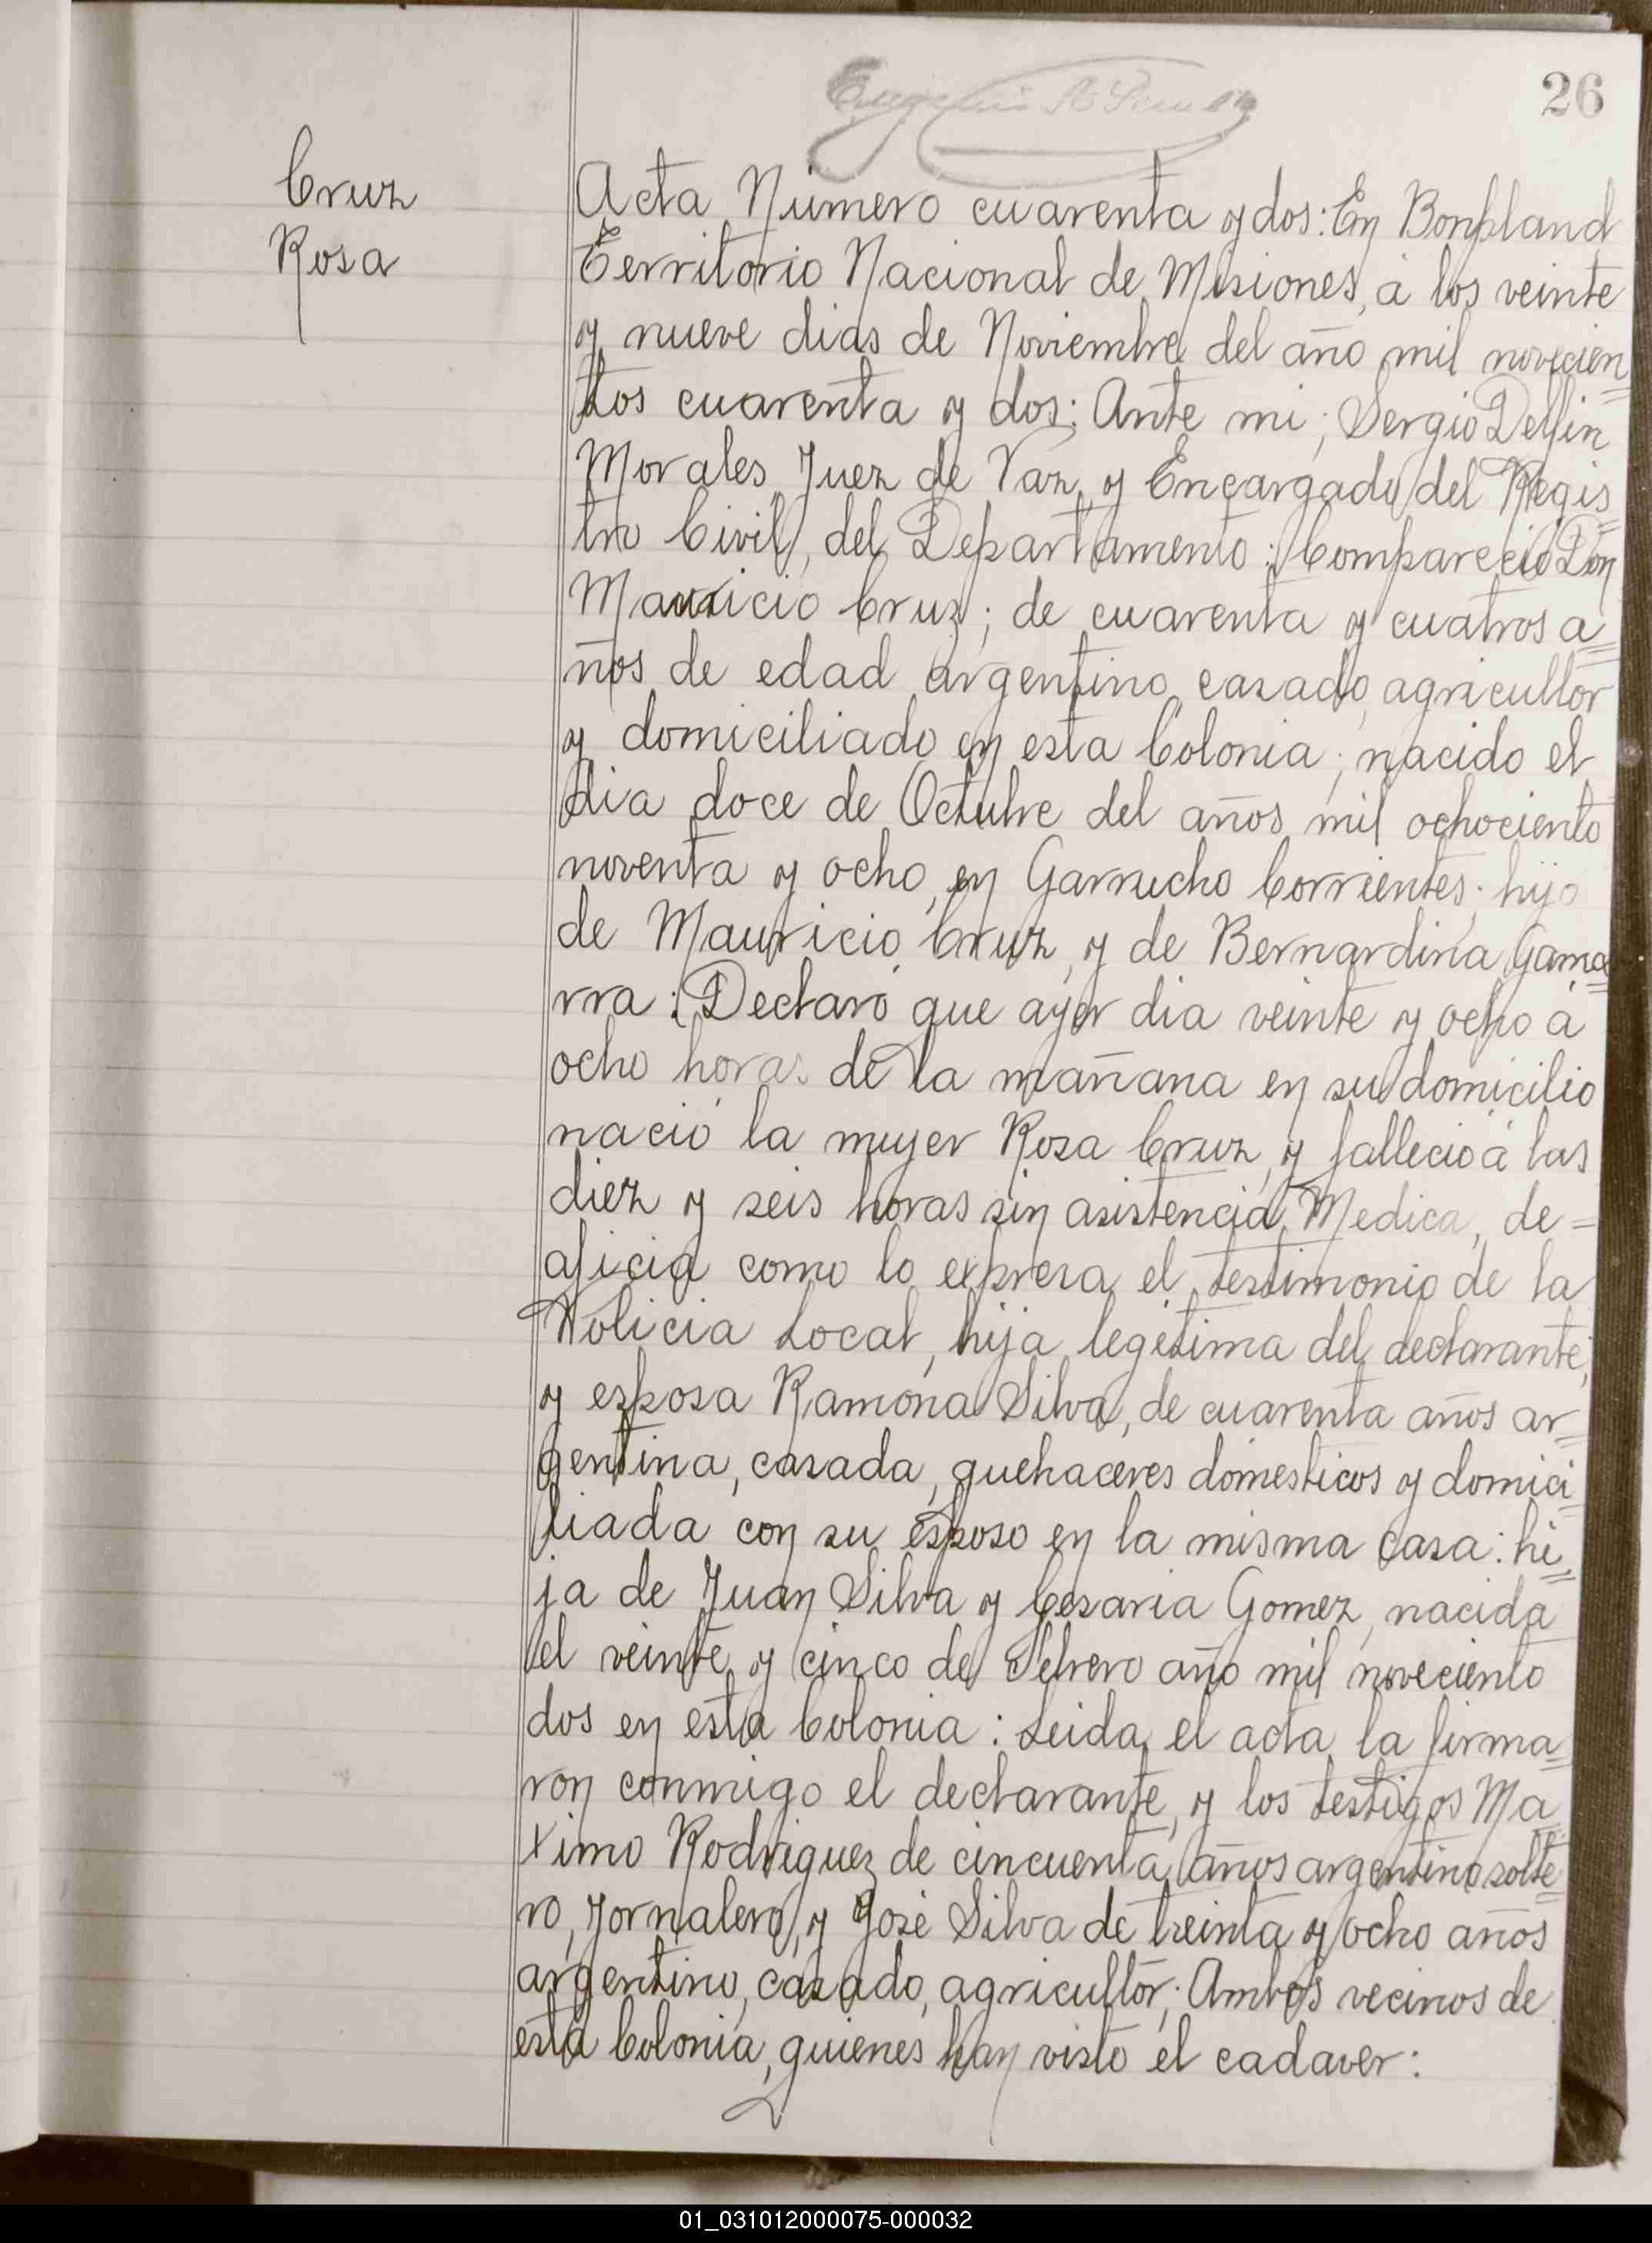 26
Cruz
Rosa
Acta Número cuarenta y dos: En Bonpland
Territorio Nacional de Misiones, á los veinte
y nueve dias de Noviembre del año mil novecien=
tos cuarenta y dos: Ante mi; Sergio Delfin
Morales, Juez de Paz, y Encargado del Regis=
tro Civil, del Departamento: Comparecio Don
Mauricio Cruz; de cuarenta y cuatros a=
ños de edad argentino, casado, agricultor
y domiciliado en esta Colonia; nacido el
dia doce de Octubre del años mil ochociento
noventa y ocho, en Garruchο Corrientes; hijo
de Mauricio Cruz, y de Bernardina Gama=
rra: Declaró que ayer dia veinte y ocho á
ocho horas de la mañana en su domicilio
nació la mujer Rosa Cruz, y fallecio á las
diez y seis horas sin asistencia Medica, de=
asficia como lo expresa el testimonio de la
Policia Local, hija legitima del declarante,
y esposa Ramona Silva, de cuarenta años ar=
gentina, casada, quehaceres domesticos y domici=
liada con su esposo en la misma casa: hi=
ja de Juan Silva y Cesaria Gomez, nacida
el veinte y cinco de Febrero año mil noveciento
dos en esta Colonia: Leida el acta la firma=
ron conmigo el declarante, y los testigos Ma=
ximo Rodriguez de cincuenta años argentino solte=
ro, Jornalero, y José Silva de treinta y ocho años
argentino, casado, agricultor; Ambos vecinos de
esta Colonia, quienes han visto el cadaver:
01_031012000075-000032